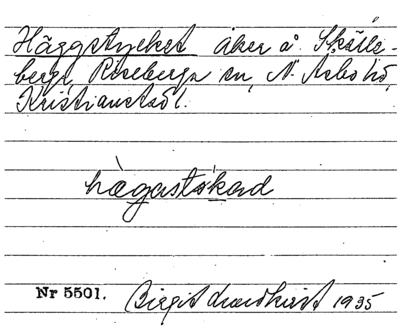 Häggstycket åker å Skälle-
berga, Riseberga sn, N. Åsbo hd,
Kristianstads l.
hægastökəd
Nr 5501. Birgit 1935